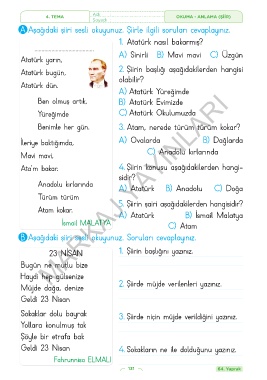 4. TEMA
Adı:
Soyadı:
OKUMA - ANLAMA (ŞİİR)
A Aşağıdaki şiiri sesli okuyunuz. Şiirle ilgili soruları cevaplayınız.
Atatürk yarın,
Atatürk bugün,
Atatürk dün.
Ben olmuş artık,
Yüreğimde
Benimle her gün.
İleriye baktığımda,
Mavi mavi,
Ata'm bakar.
Anadolu kırlarında
Türüm türüm
Atam kokar.
İsmail MALATYA
1. Atatürk nasıl bakarmış?
A) Sinirli B) Mavi mavi C) Üzgün
2. Şiirin başlığı aşağıdakilerden hangisi
olabilir?
A) Atatürk Yüreğimde
B) Atatürk Evimizde
C) Atatürk Okulumuzda
3. Atam, nerede türüm türüm kokar?
A) Ovalarda B) Dağlarda
C) Anadolu kırlarında
4. Şiirin konusu aşağıdakilerden hangi-
sidir?
A) Atatürk B) Anadolu C) Doğa
5. Şiirin şairi aşağıdakilerden hangisidir?
A) Atatürk B) İsmail Malatya
C) Atam
B Aşağıdaki şiiri sesli okuyunuz. Soruları cevaplayınız.
23 NİSAN
Bugün ne mutlu bize
Haydi hep gülsenize
Müjde dağa, denize
Geldi 23 Nisan
Sokaklar dolu bayrak
Yollara konulmuş tak
Şöyle bir etrafa bak
Geldi 23 Nisan
Fahrunnisa ELMALI
1. Şiirin başlığını yazınız.
2. Şiirde müjde verilenleri yazınız.
3. Şiirde niçin müjde verildiğini yazınız.
4. Sokakların ne ile dolduğunu yazınız.
131
64. Yaprak